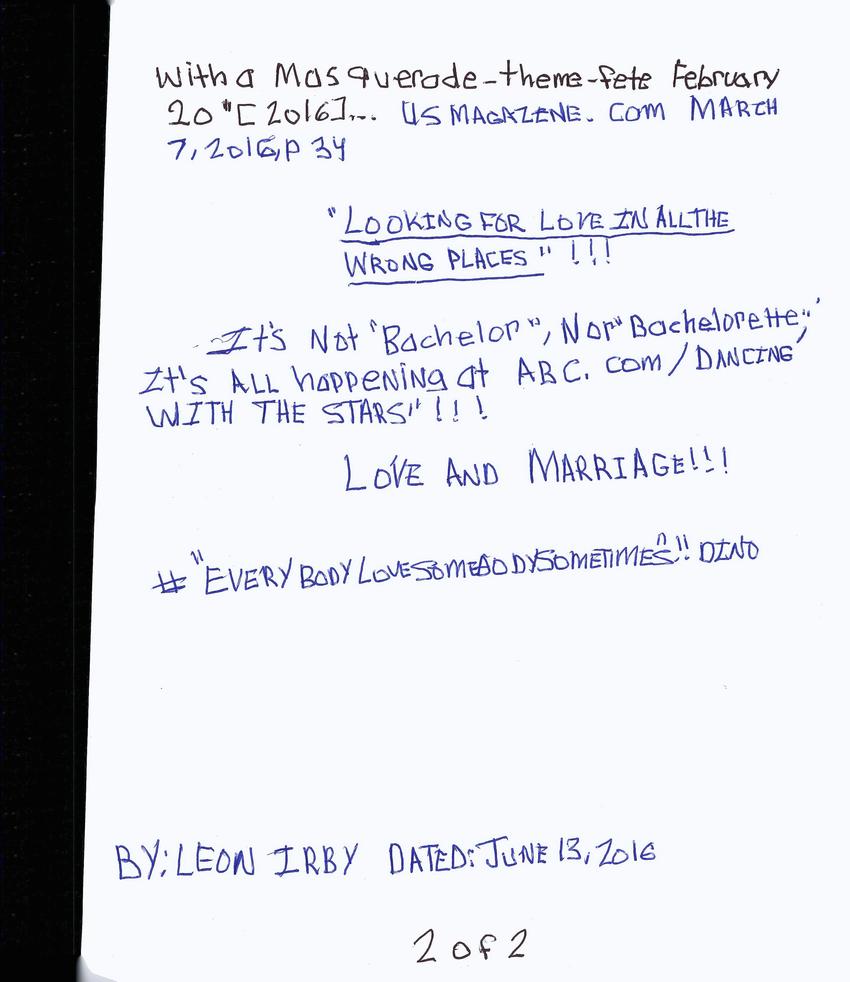 With a Masquerade-theme-fete February
20"[2016]... US MAGAZENE. COM MARCH
7, 2016, P 34
"LOOKING FOR LOVE IN ALL THE
WRONG PLACES" !!!
-It's Not "Bachelor", Nor "Bachelorette,"
It's ALL happening at ABC. com/DANCING
WITH THE STARS"!!!
LOVE AND MARRIAGE!!!
#"EVERYBODYLOVESOMEBODYSOMETIMES"!! DINO
BY: LEON IRBY DATED: JUNE 13, 2016
2 of 2